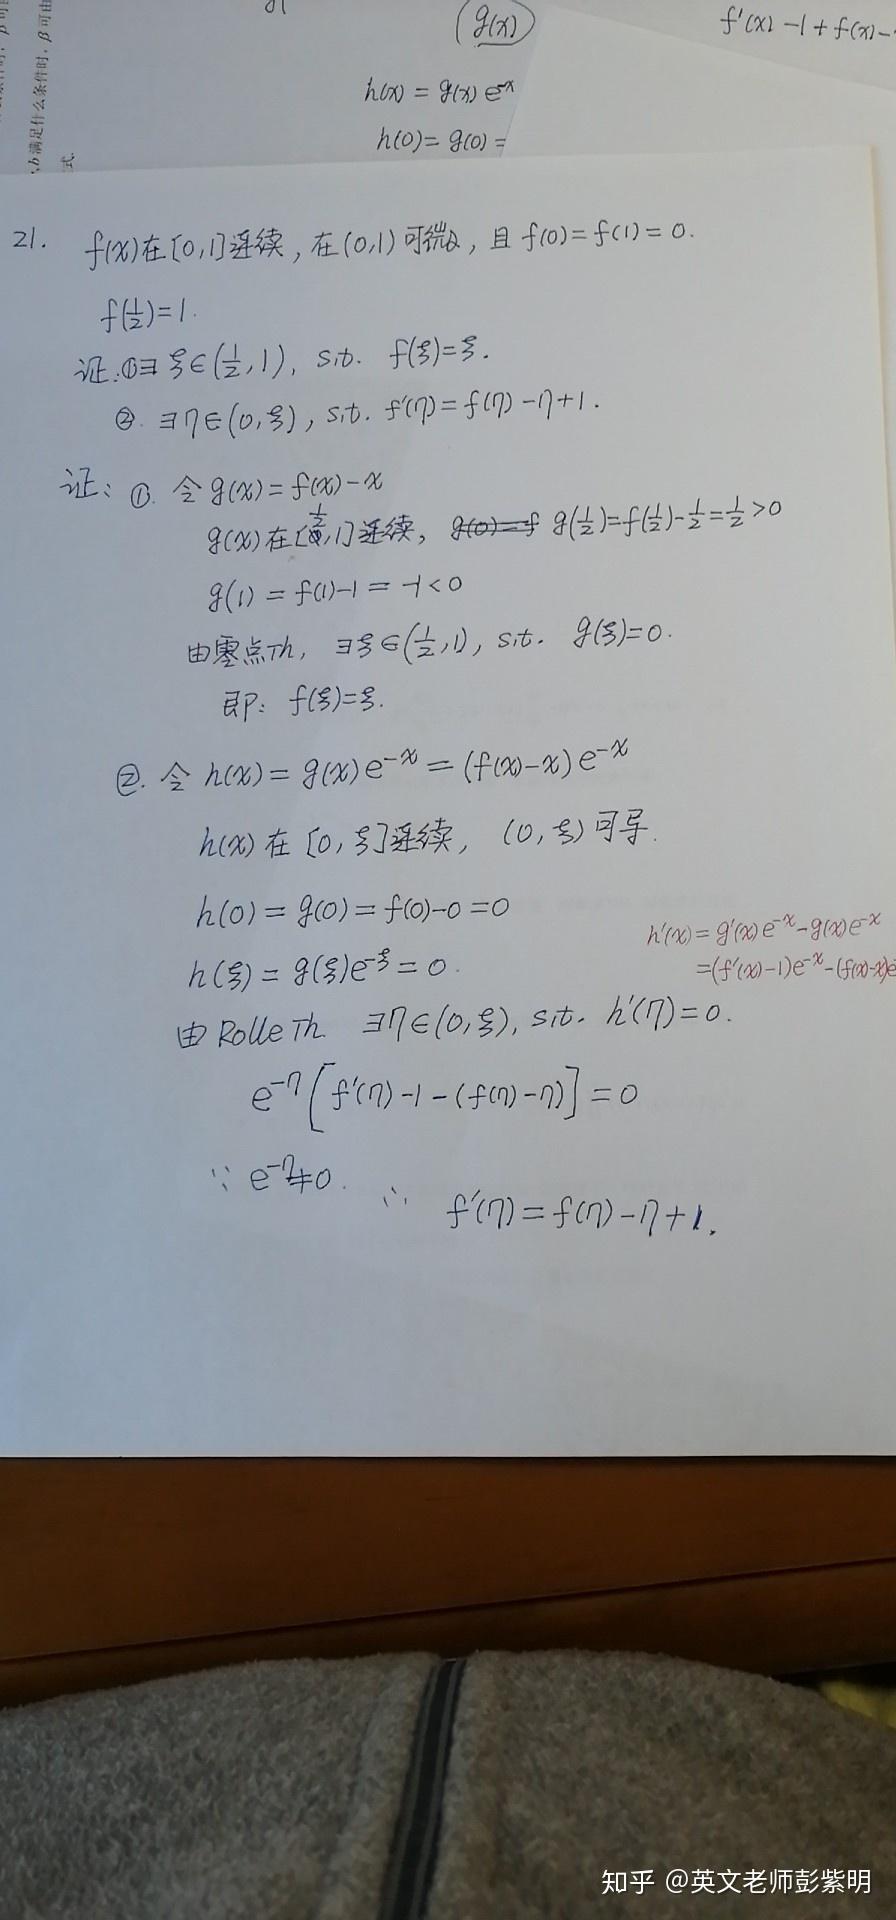 (g(x))
f'(x) -1 + f(x) -
h(x) = g(x) e^-x
h(0) = g(0) =
,b满足什么条件时, β可由
式.
21. f(x)在[0,1]连续, 在(0,1)可微, 且 f(0)=f(1)=0.
f(1/2)=1.
证:①∃ ξ∈(1/2,1), s.t. f(ξ)=ξ.
②. ∃η∈(0,ξ), s.t. f'(η)=f(η)-η+1.
证: ①. 令 g(x)=f(x)-x
g(x)在[1/2,1]连续, g(0)=f g(1/2)=f(1/2)-1/2=1/2>0
g(1)=f(1)-1=-1<0
由零点Th, ∃ξ∈(1/2,1), s.t. g(ξ)=0.
即: f(ξ)=ξ.
②. 令 h(x)=g(x)e^-x=(f(x)-x)e^-x
h(x)在[0,ξ]连续, (0,ξ)可导.
h(0)=g(0)=f(0)-0=0
h'(x)=g'(x)e^-x-g(x)e^-x
h(ξ)=g(ξ)e^-ξ=0.
=(f'(x)-1)e^-x-(f(x)-x)e
由 Rolle Th. ∃η∈(0,ξ), s.t. h'(η)=0.
e^-η[f'(η)-1-(f(η)-η)]=0
∵ e^-η≠0. ∴ f'(η)=f(η)-η+1.
知乎 @英文老师彭紫明